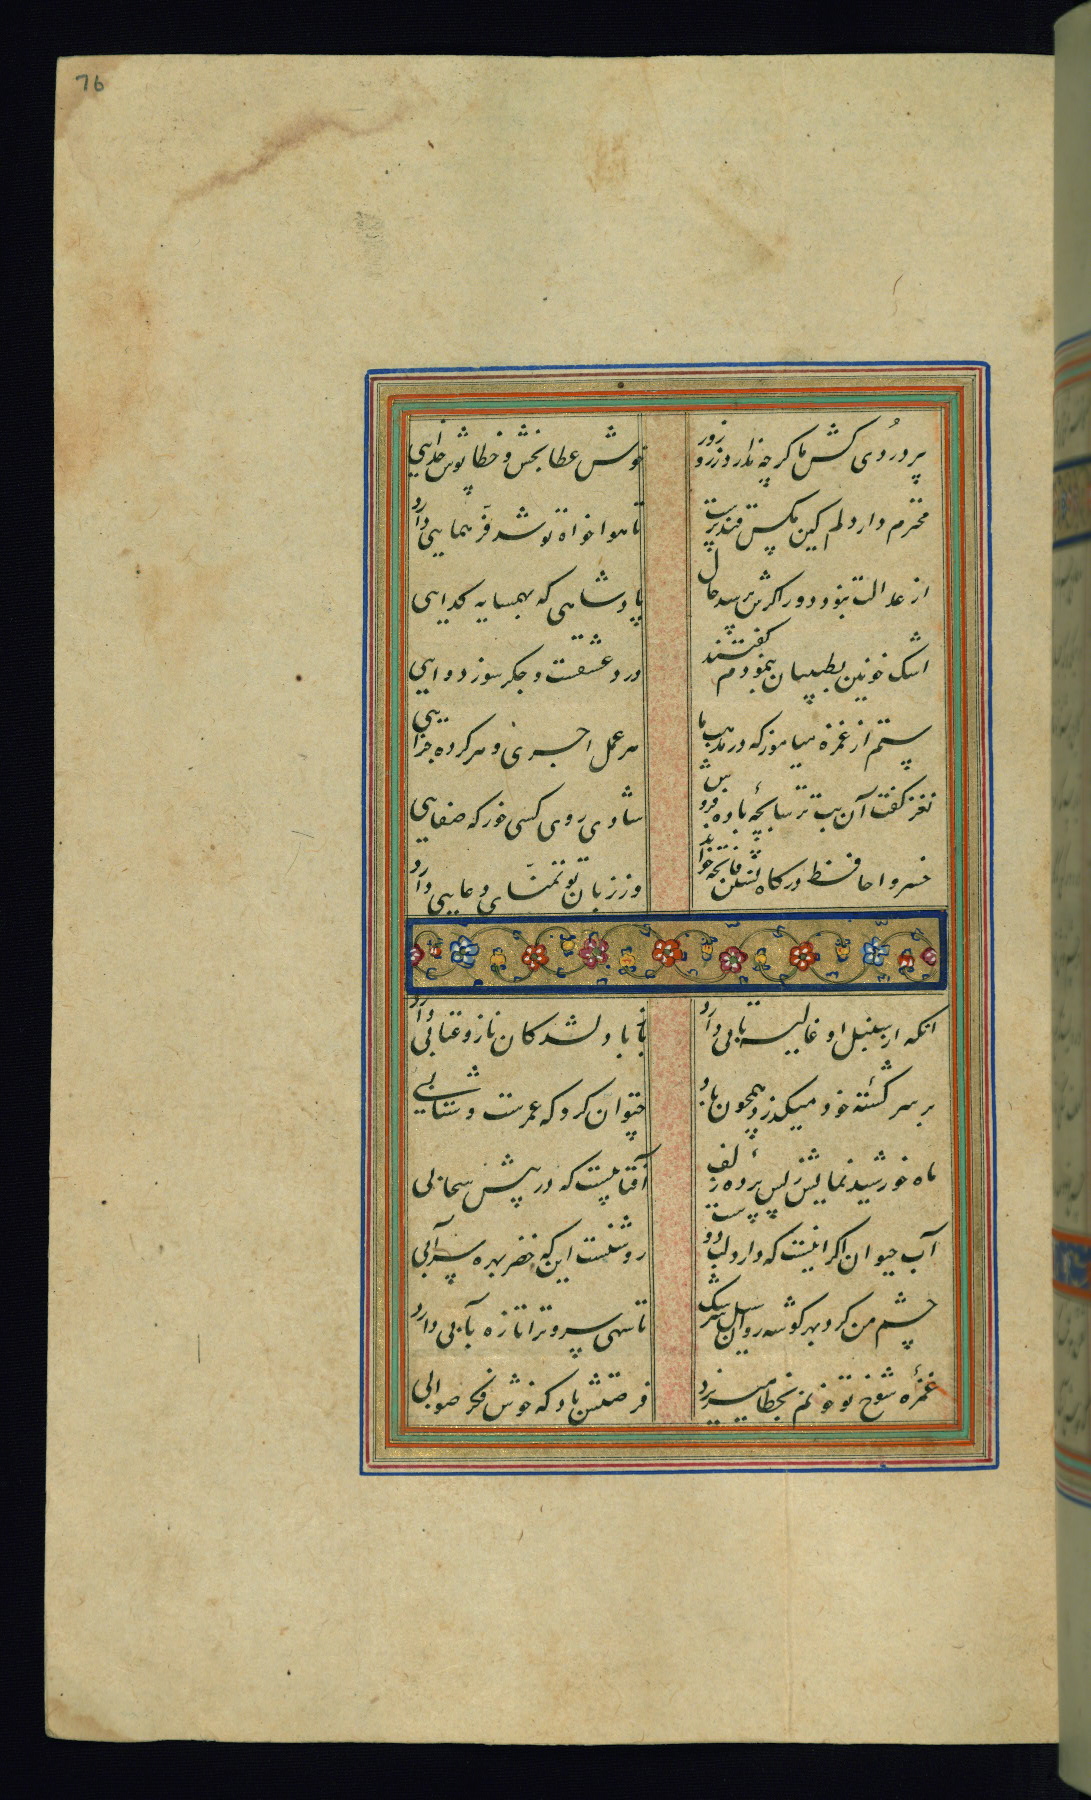 76
پیر دُردی کش ما کرچه ندارد زر و زور
خوش عطا بخش و خطا پوش خدایی دارد
محترم دار دلم کین مکس قند پرست
تا هوا خواه تو شد فرّ همایی دارد
از عدالت نبود دور اکرش پرسد حال
پادشاهی که بهمسایه کدایی
اشک خونین بطبیبان بنمودم کفتند
درد عشقست و جکر سوز دوایی
ستم از غمزه میاموز که در مذهب ما
هر عمل اجری و هر کرده جزایی
نغز کفت آن بت ترسا بچهٔ باده فروش
شادی روی کسی خور که صفایی
خسروا حافظ درکاه نشین فاتحه خواند
وز زبان تو تمنّای دعایی دارد
آنکه از سنبل او غالیه تابی دارد
باز با دلشدکان ناز و عتابی دارد
بر سر کشتهٔ خود میکذرد همچون باد
چتوان کرد که عمرست و شتابی
ماه خورشید نمایش ز پس پردهٔ زلف
آفتابیست که در پیش سحابی
آب حیوان اکر اینست که دارد لب دوست
روشنست این که خضر بهره سرابی
چشم من کرد بهر کوشه روان سیل سرشک
تا سهی سرو ترا تازه بآبی دارد
غمزهٔ شوخ تو خونم بخطا میریزد
فرصتش باد که خوش فکر صوابی